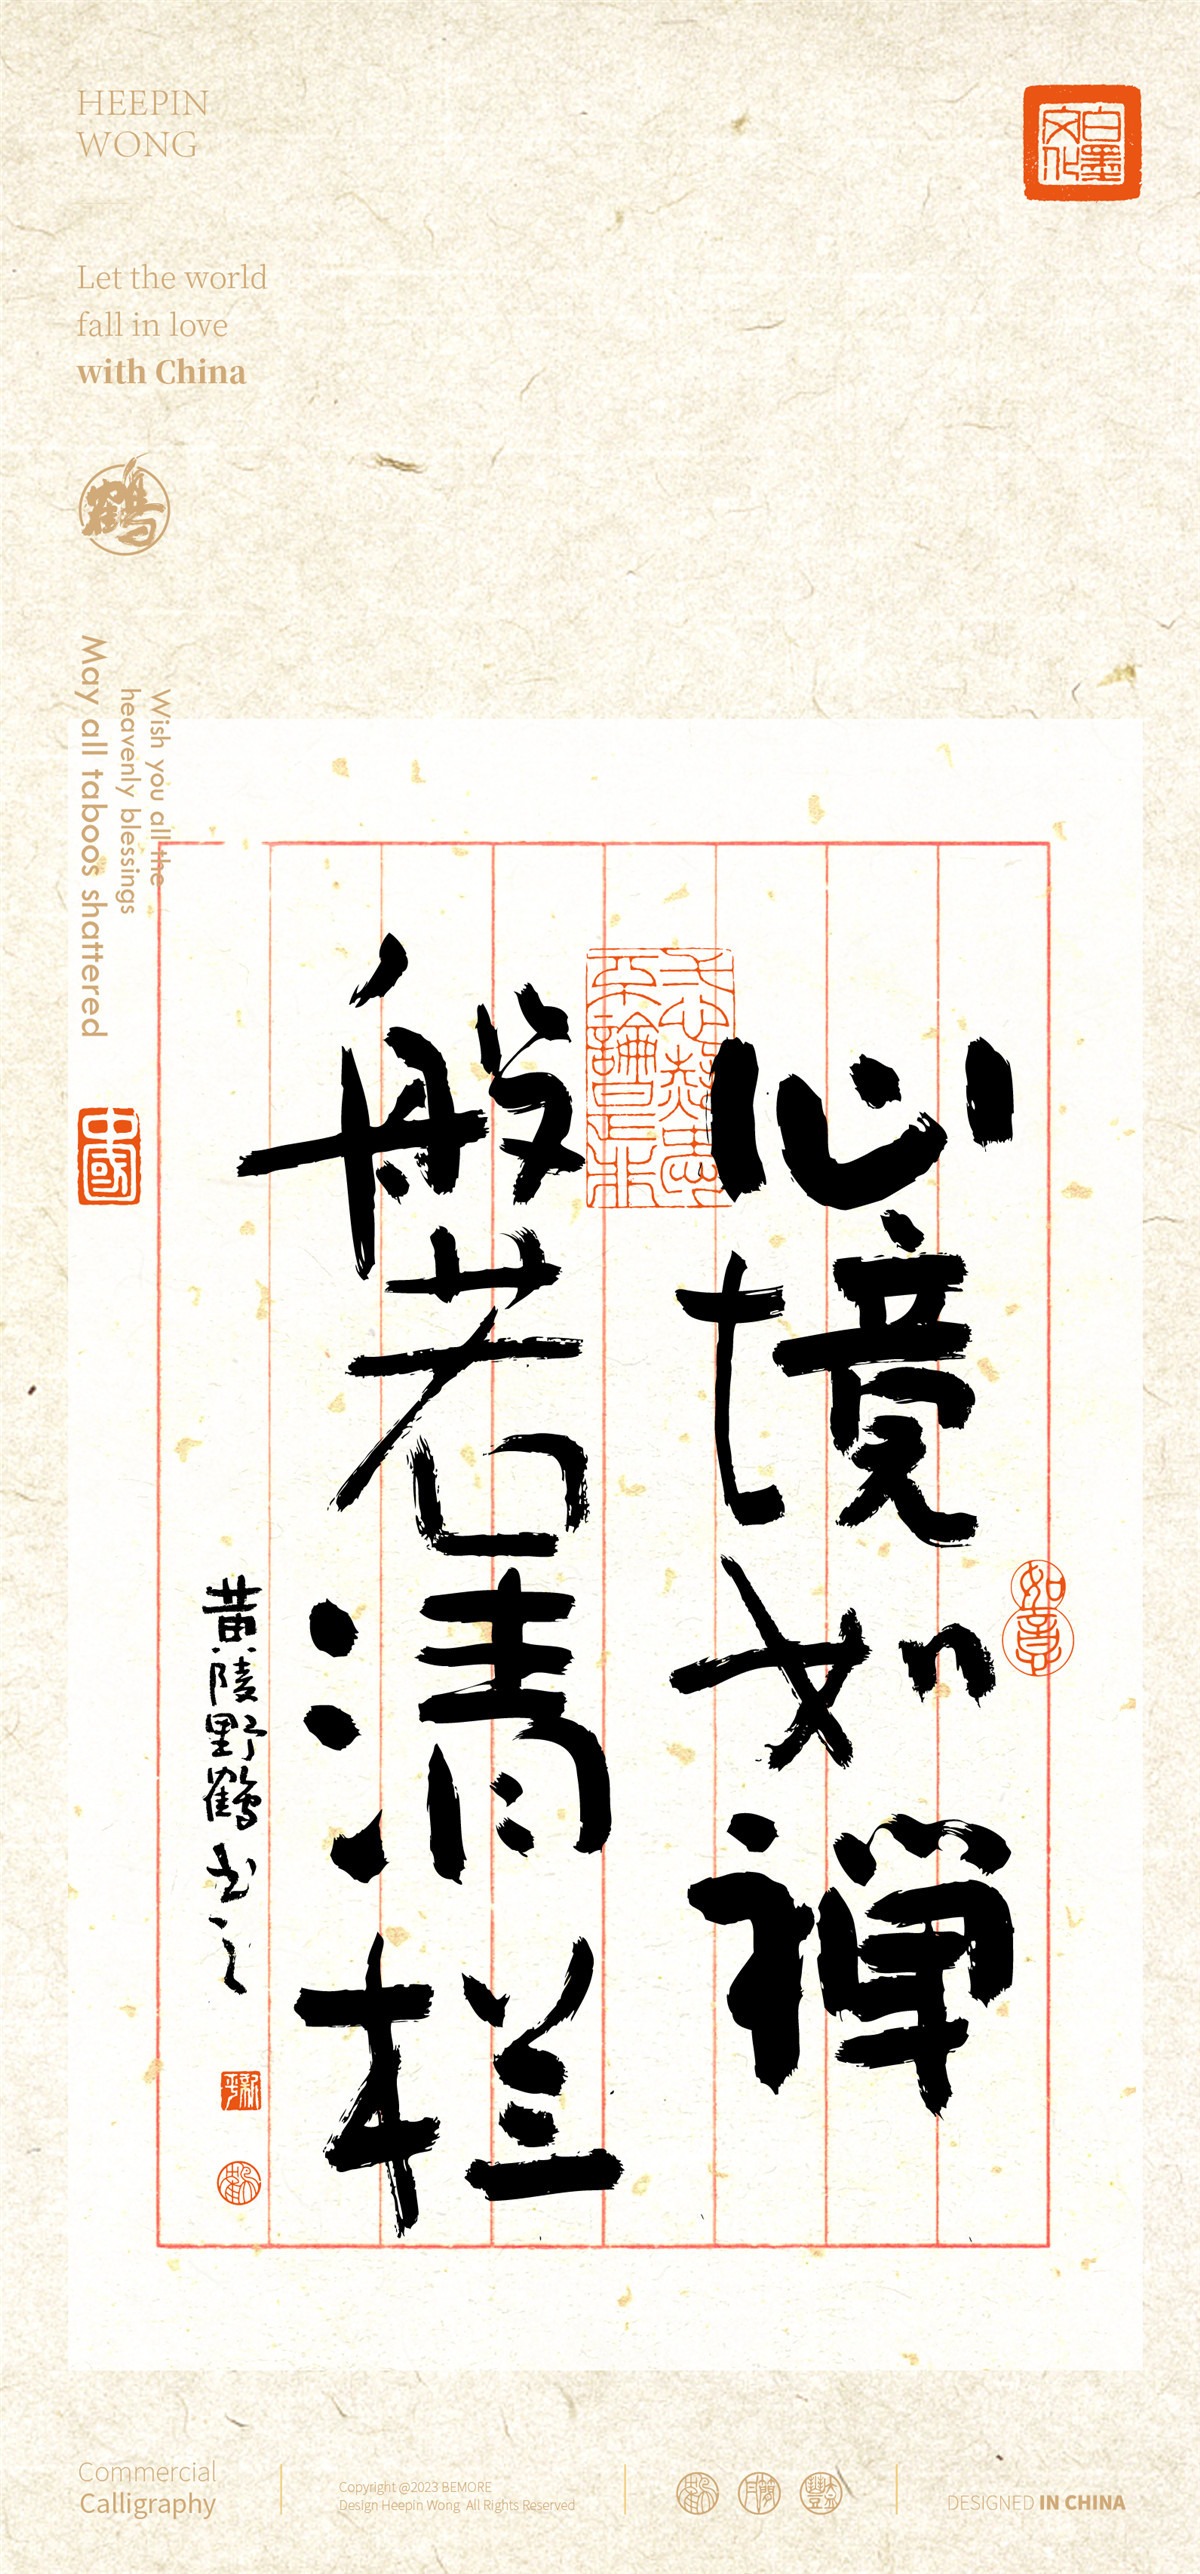 HEEPIN
WONG
白墨
文化
Let the world
fall in love
with China
鹤
Wish you all the
heavenly blessings
May all taboos shattered
中國
心境如禅
般若清栏
如意
黄陵野鹤书之
Commercial
Calligraphy
Copyright @2023 BEMORE
Design Heepin Wong All Rights Reserved
DESIGNED IN CHINA